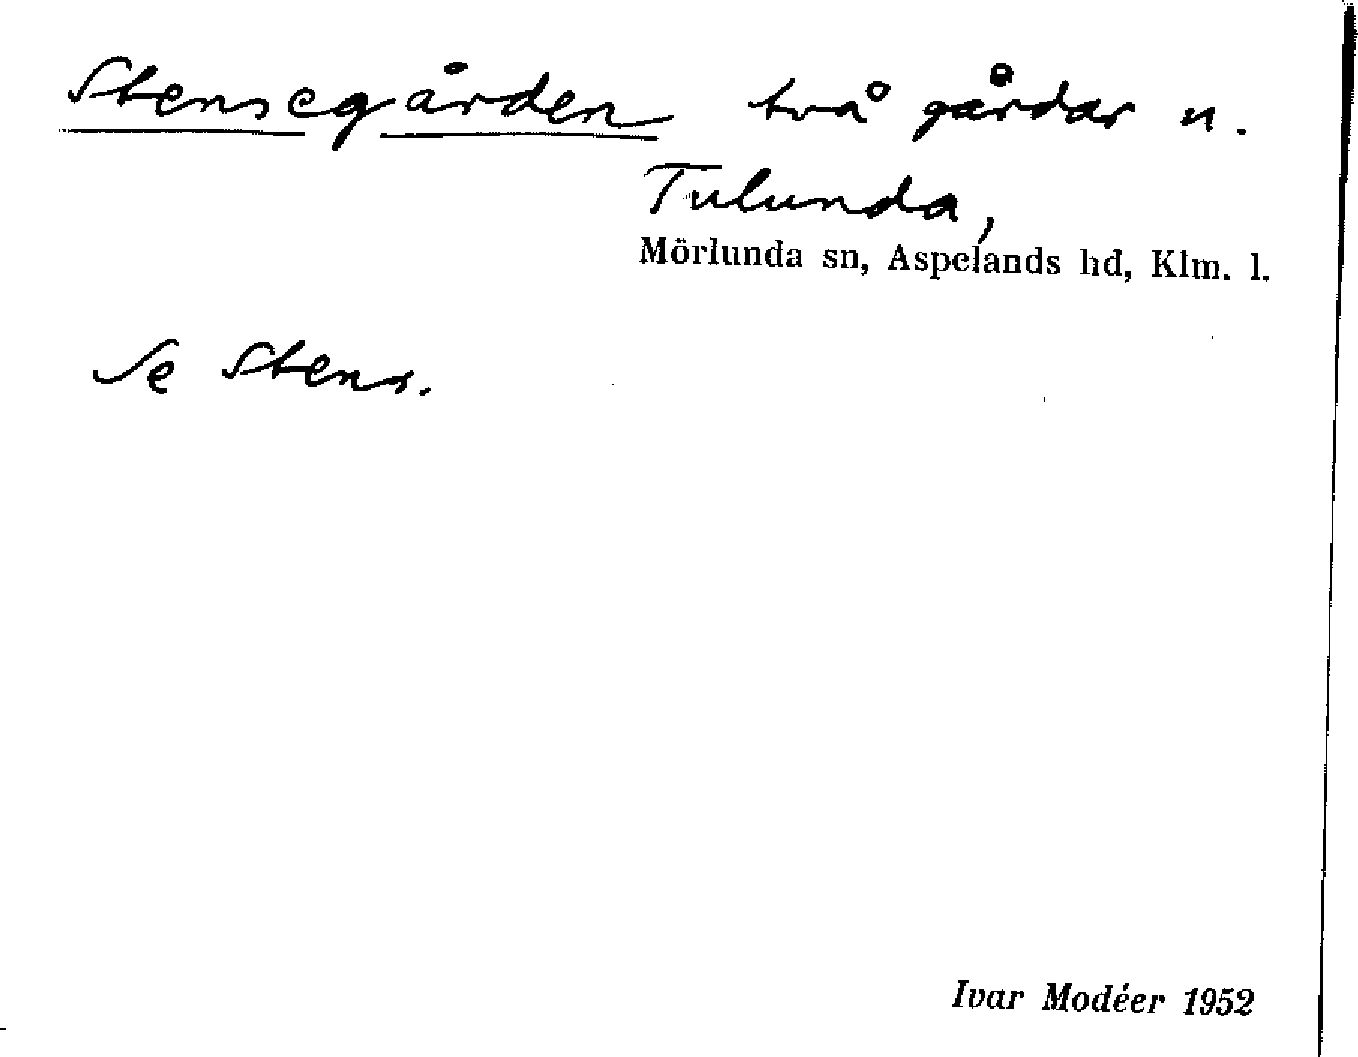 Stensegården två gårdar n.
Tulunda,
Mörlunda sn, Aspelands hd, Klm. l.
Se Stens.
Ivar Modéer 1952